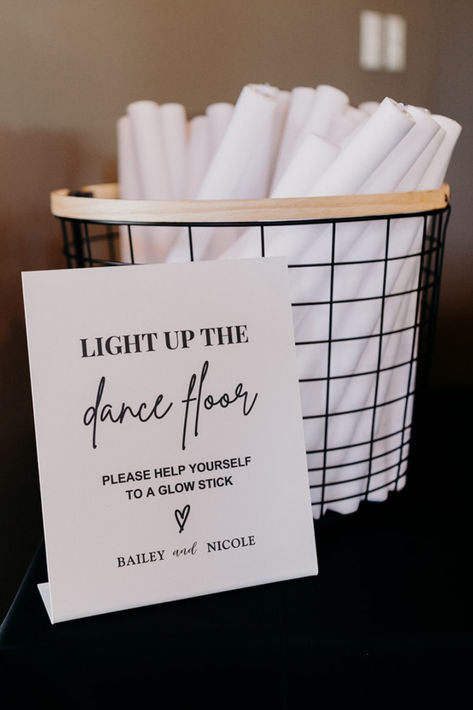 LIGHT UP THE
dance floor
PLEASE HELP YOURSELF
TO A GLOW STICK
BAILEY and NICOLE